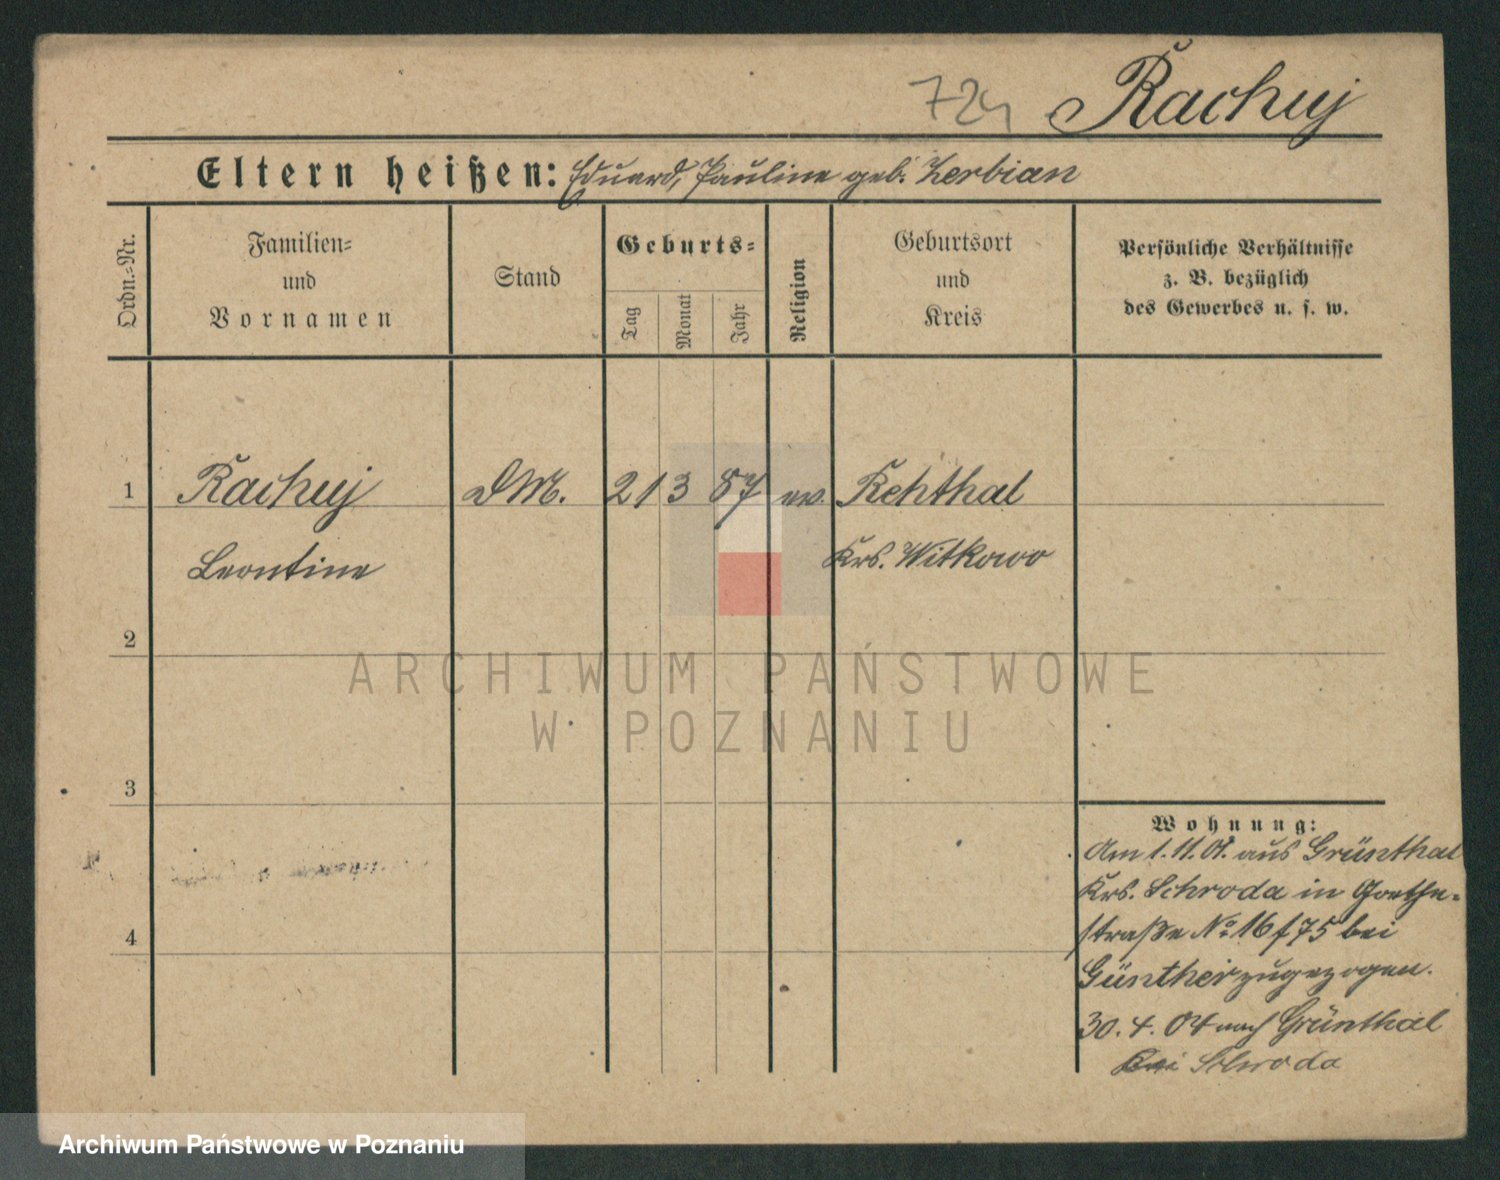 724 Rachuj
Eltern heißen: Eduard, Pauline geb. Zerbian
Ordn.-Nr.
Familien-
und
Vornamen
Stand
Geburts-
Tag
Monat
Jahr
Religion
Geburtsort
und
Kreis
Persönliche Verhältnisse
z. B. bezüglich
des Gewerbes u. s. w.
1 Rachuj DM. 21 3 87 ev. Rehthal
Leontine Krs. Witkowo
2
ARCHIWUM PAŃSTWOWE
W POZNANIU
3
4
Wohnung:
Am 1.11.01. aus Grünthal
Krs. Schroda in Goethe-
straße No 16 f 75 bei
Günther zugezogen.
30.4.04 nach Grünthal
Schroda
Archiwum Państwowe w Poznaniu